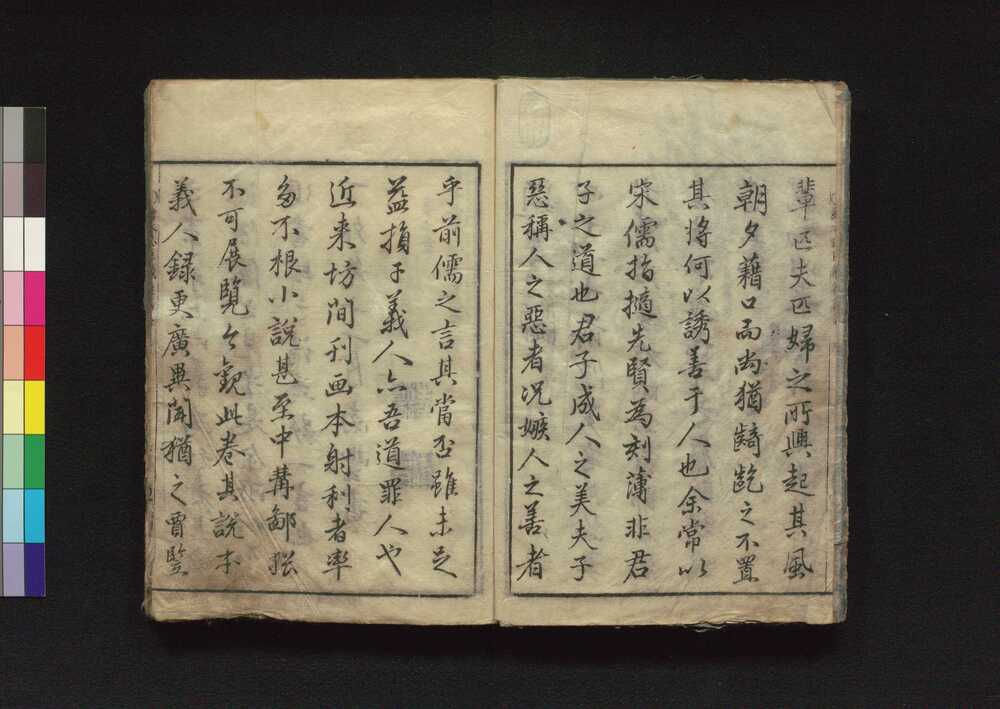 輩匹夫匹婦之所興起其風
朝夕藉口而尚猶齮齕之不置
其将何以誘善于人也余常以
宋儒指擿先賢為刻薄非君
子之道也君子成人之美夫子
惡稱人之惡者况嫉人之善者
乎前儒之言其當否雖未足
益損于義人亦吾道罪人也
近来坊間刊画本射利者率
多不根小說甚至中冓鄙
不可展覧今観此巻其說本
義人録更廣異聞猶之賈豎